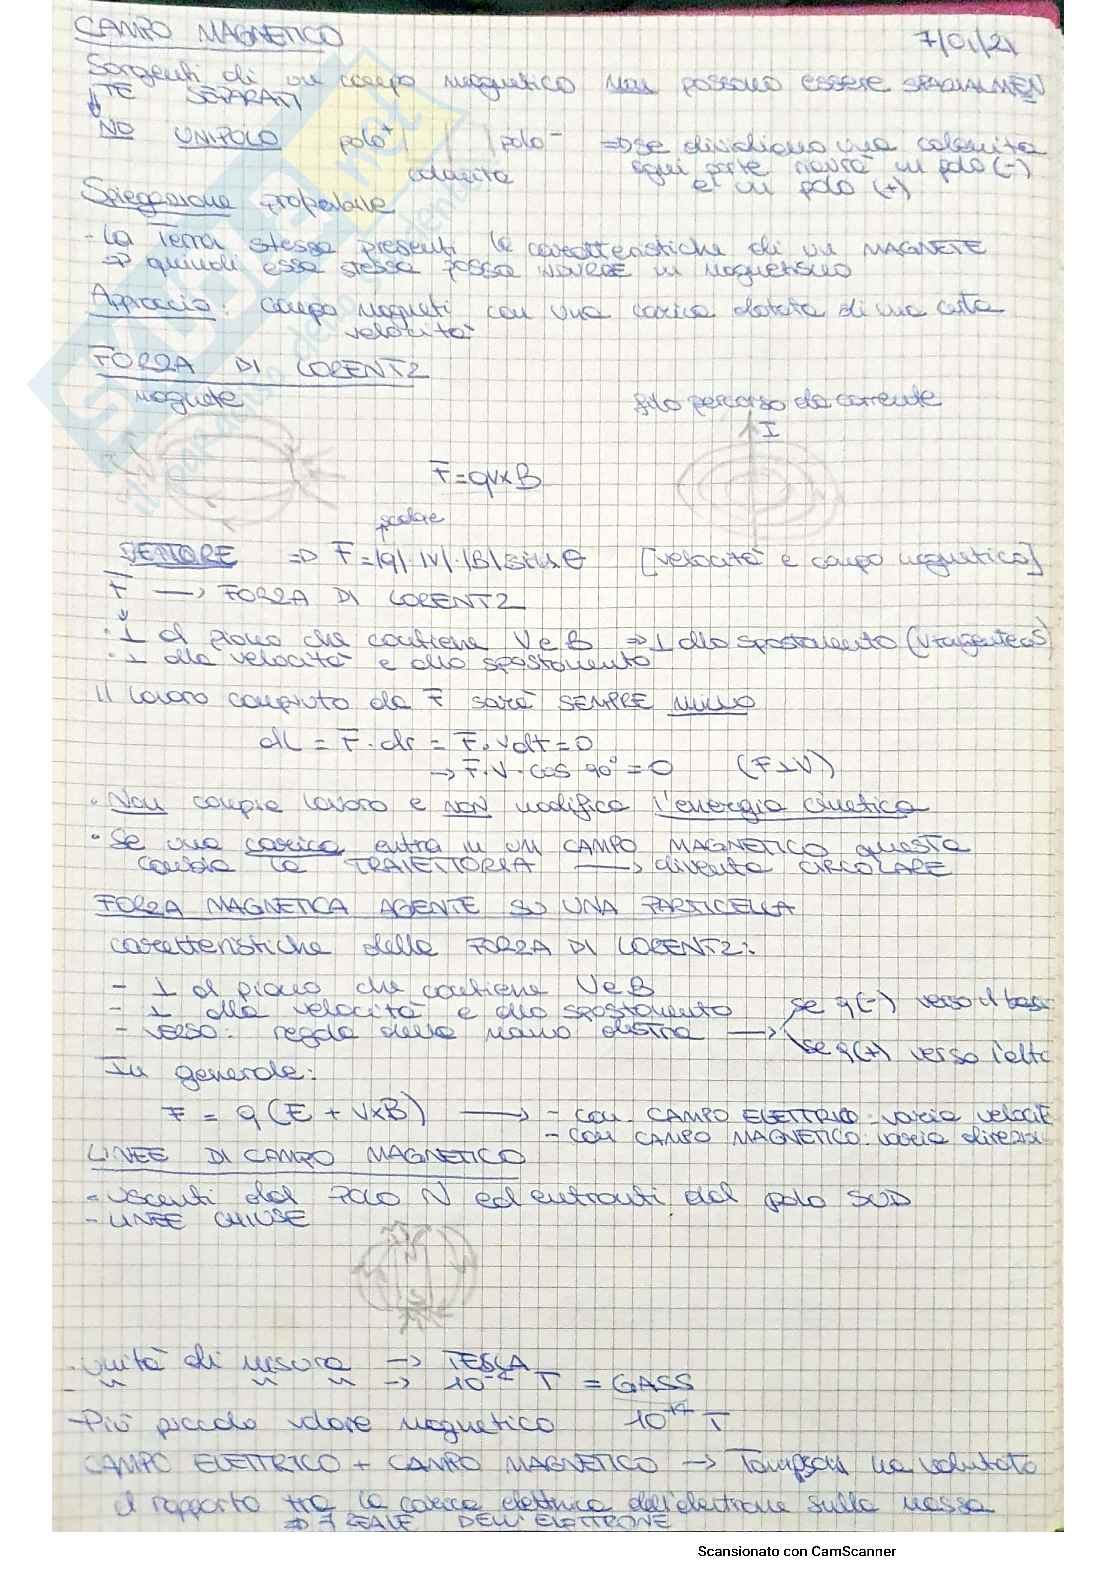 CAMPO MAGNETICO 7/01/21
Sorgenti di un campo magnetico non possono essere SPAZIALMEN
TE SEPARATI
NO UNIPOLO polo+ polo- => se dividiamo una calamita
calamita ogni parte riavrà un polo (-)
e un polo (+)
Spiegazione probabile
- La Terra stessa presenti le caratteristiche di un MAGNETE
=> quindi essa stessa possa AVERE un magnetismo
Approccio: campo magneti con una carica dotata di una certa
velocità
FORZA DI LORENTZ
magnete filo percorso da corrente
I
F = qv×B
scalare
VETTORE => F = |q|·|V|·|B| sin θ [velocità e campo magnetico]
F —> FORZA DI LORENTZ
· ⊥ al piano che contiene V e B => ⊥ allo spostamento (V tangente a S)
· ⊥ alla velocità e allo spostamento
Il lavoro compiuto da F sarà SEMPRE nullo
dL = F·ds = F·vdt = 0
—> F·V·cos 90° = 0 (F⊥V)
· Non compie lavoro e NON modifica l'energia cinetica
· Se una carica entra in un CAMPO MAGNETICO questa
cambia la TRAIETTORIA —> diventa CIRCOLARE
FORZA MAGNETICA AGENTE SU UNA PARTICELLA
caratteristiche della FORZA DI LORENTZ:
- ⊥ al piano che contiene V e B
- ⊥ alla velocità e allo spostamento se q(-) verso il basso
- verso: regola della mano destra —> se q(+) verso l'alto
In generale:
F = q(E + V×B) —> - con CAMPO ELETTRICO: varia velocit
- con CAMPO MAGNETICO: varia direzi
LINEE DI CAMPO MAGNETICO
- uscenti dal Polo N ed entranti dal polo SUD
- LINEE CHIUSE
- unità di misura —> TESLA
- " " " —> 10⁻⁴ T = GASS
- Più piccolo valore magnetico 10⁻¹⁴ T
CAMPO ELETTRICO + CAMPO MAGNETICO —> ha valutato
il rapporto tra la carica elettrica dell'elettrone sulla massa
REALE DELL'ELETTRONE
Scansionato con CamScanner